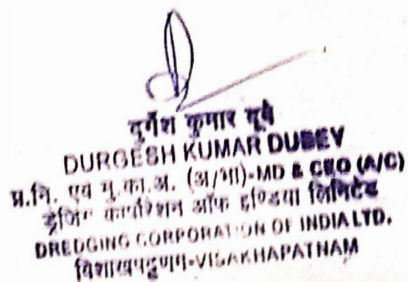 दुर्गेश कुमार दूबे
DURGESH KUMAR DUBEY
प्र.नि. एवं मु.का.अ. (अ/भा)-MD & CEO (A/C)
ड्रेजिंग कार्पोरेशन ऑफ इण्डिया लिमिटेड
DREDGING CORPORATION OF INDIA LTD.
विशाखपट्टणम-VISAKHAPATNAM